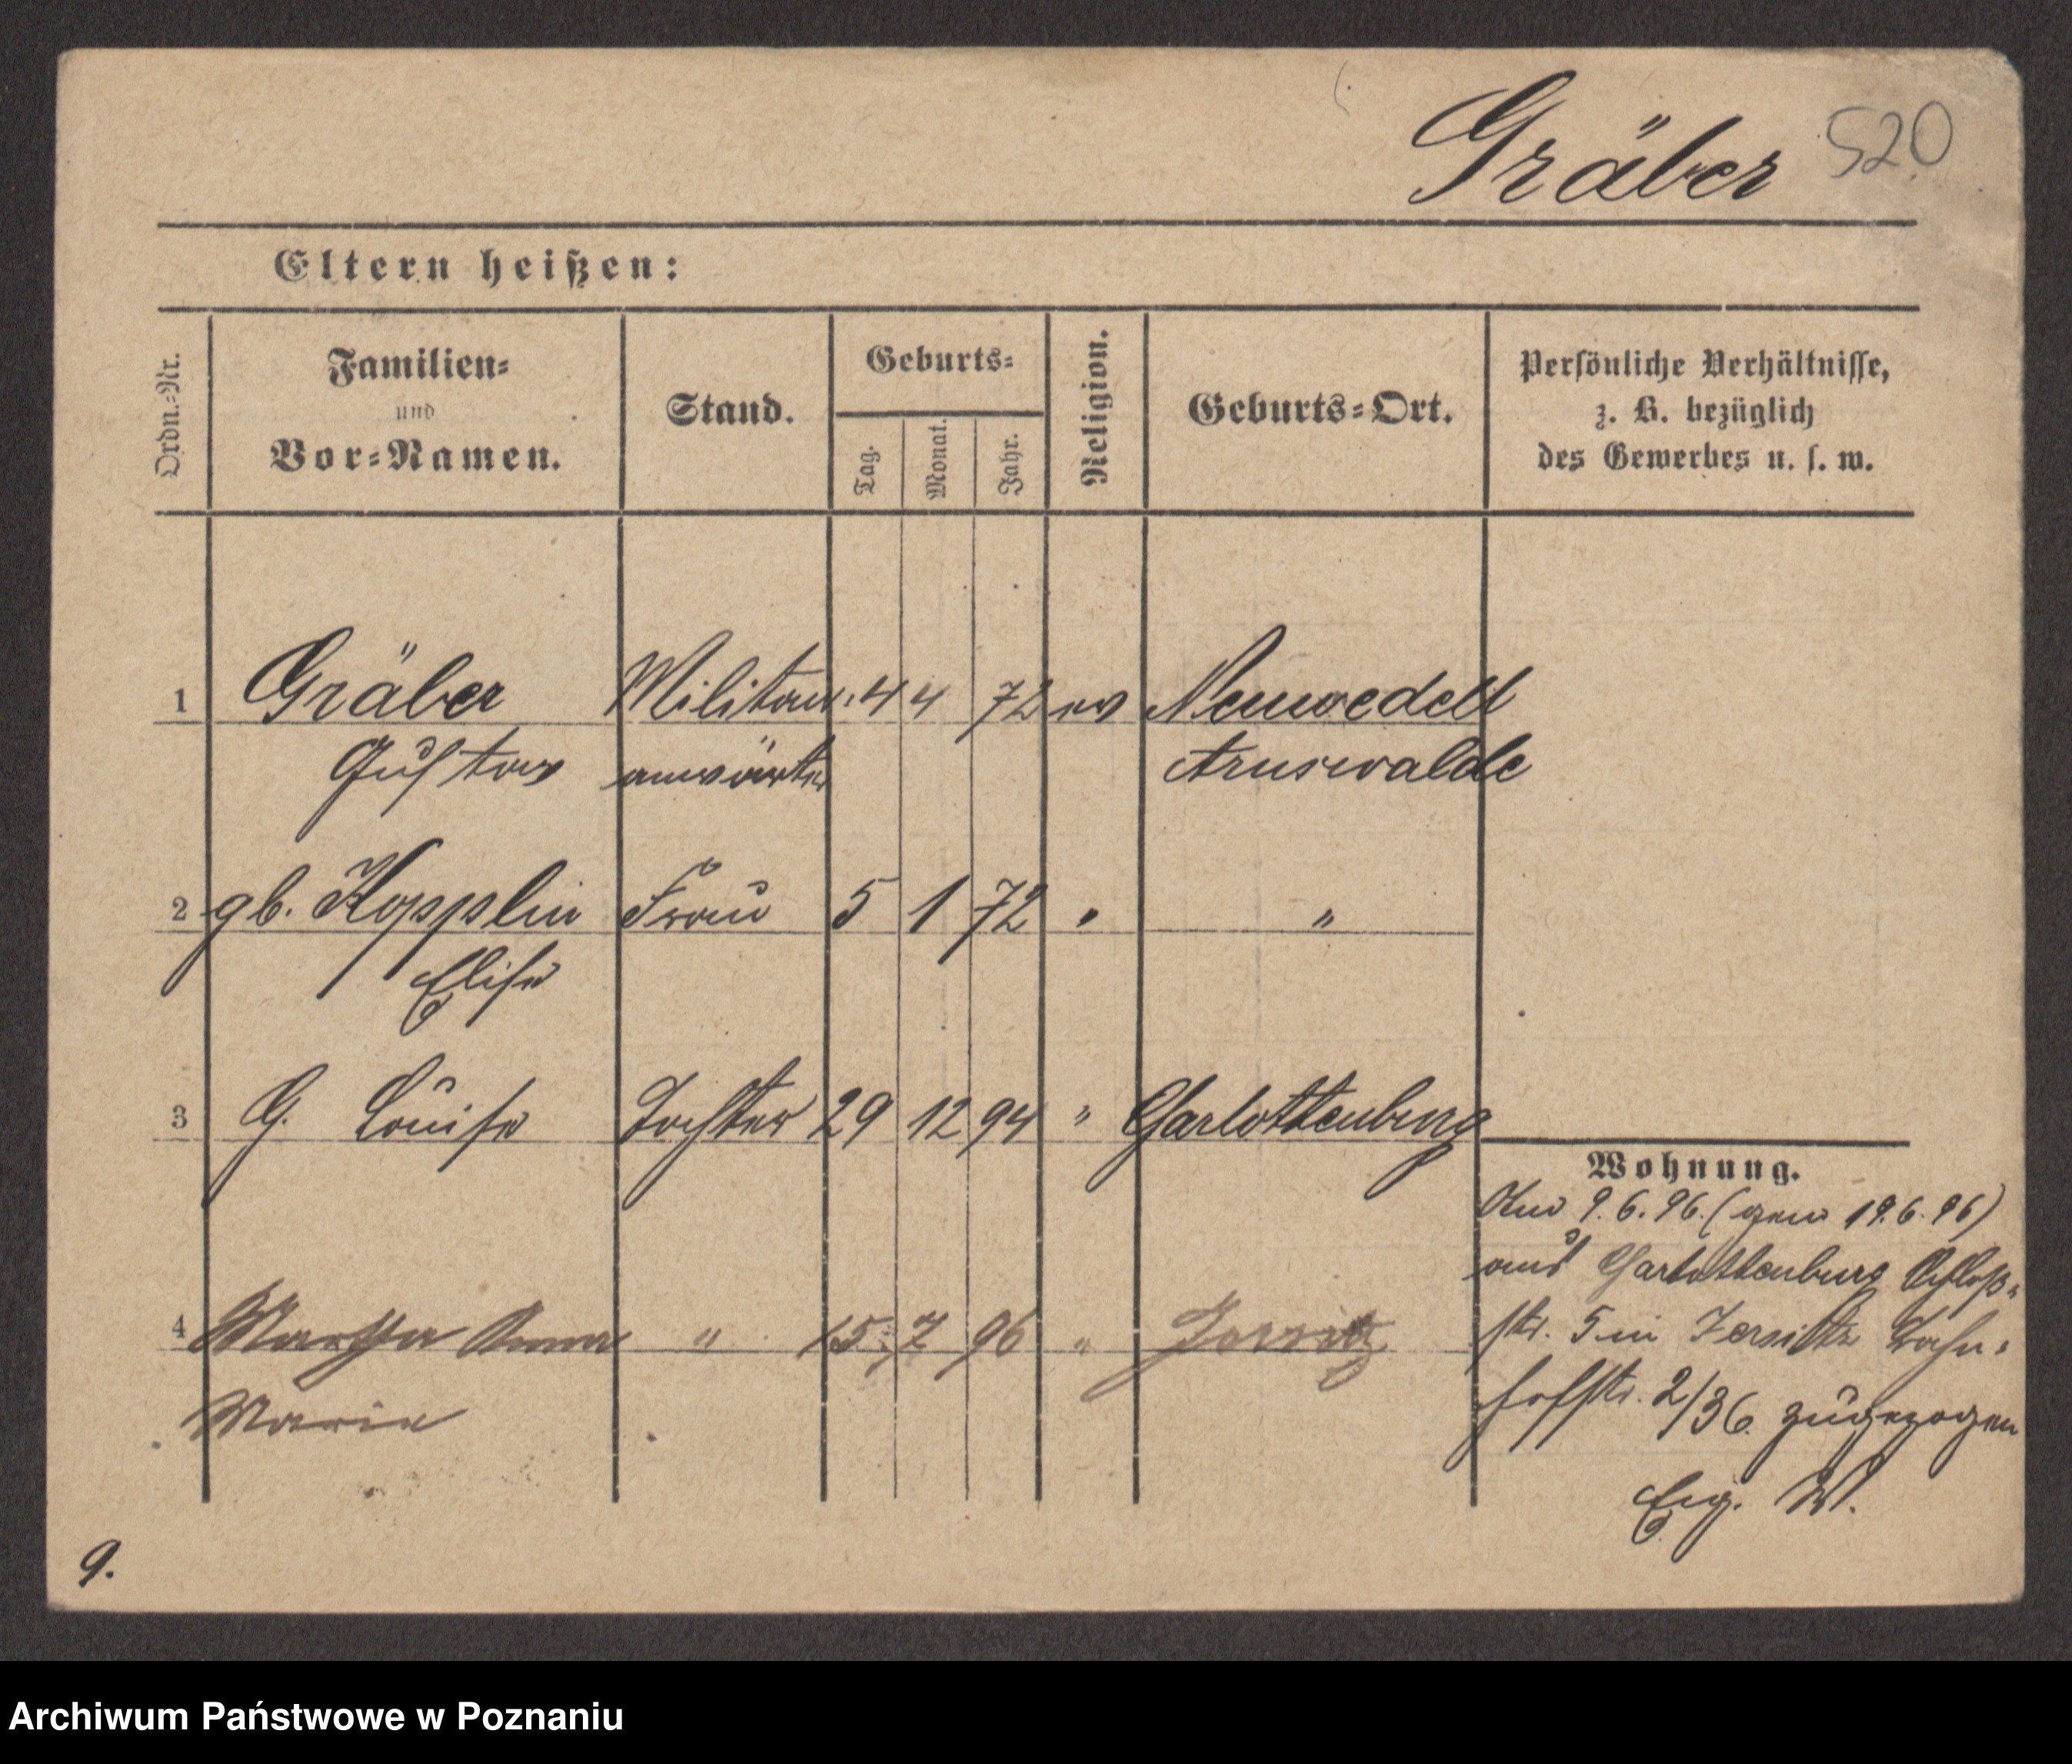 Gräber 520
Eltern heißen:
Ordn.-Nr.
Familien-
und
Vor-Namen.
Stand.
Geburts-
Tag.
Monat.
Jahr.
Religion.
Geburts-Ort.
Persönliche Verhältnisse,
z. B. bezüglich
des Gewerbes u. s. w.
1 Gräber Militair- 4 4 72 ev Neuwedell
Gustav anwärter Arnswalde
2 gb. Kopplin Frau 5 1 72 " "
Elise
3 G. Louise Tochter 29 12 94 " Charlottenburg
4 Martha Anna " 15 7 96 " Jersitz
Marie
Wohnung.
Am 9.6.96. (gem 19.6.96)
aus Charlottenburg Schloß-
str. 5 in Jersitz Bahn-
hofstr. 2/36 zugezogen
Eig. W.
9.
Archiwum Państwowe w Poznaniu